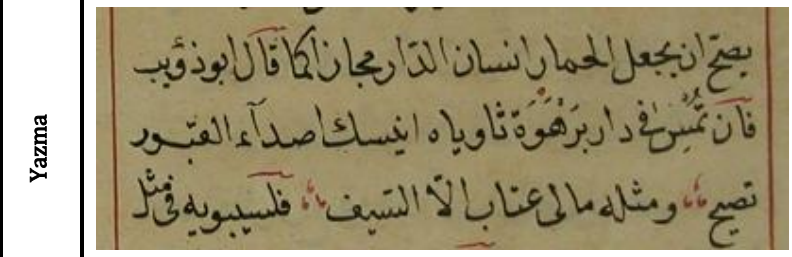 Yazma
يصحّ ان يجعل الحمار انسان الدّار مجازا كما قال ابوذؤيب
فان تُمْسِ فى دار برَهْوَة ثاويا ه انيسك اصدآء القبور
تصيح ومثله مالى عتاب الّا السّيف فلسيبويه فى مثل